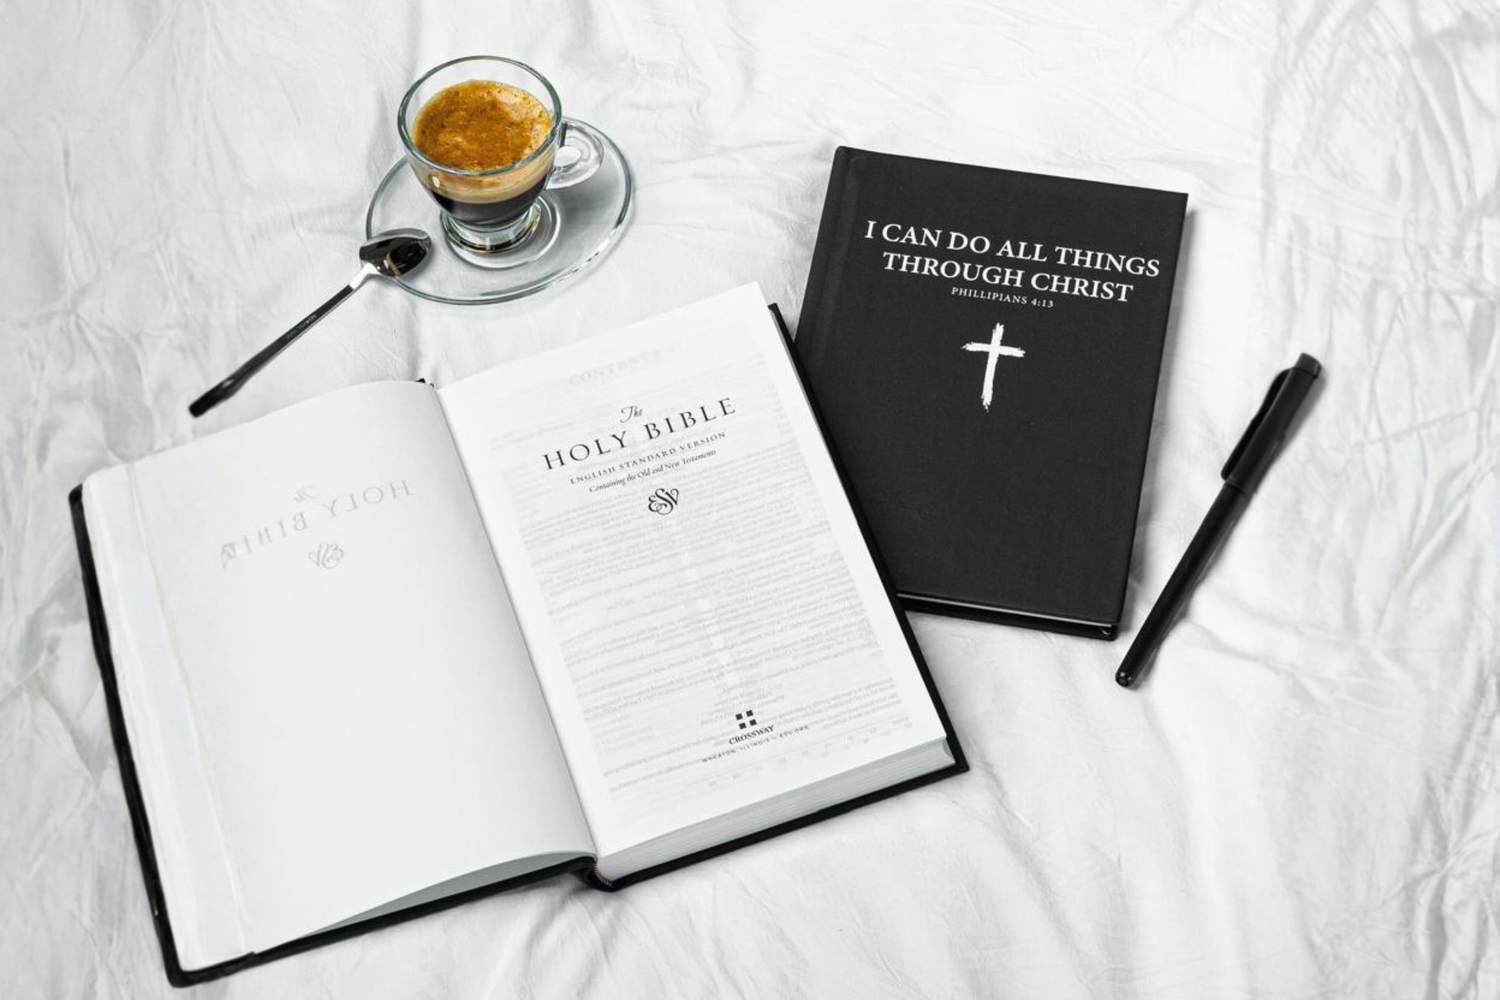 I CAN DO ALL THINGS
THROUGH CHRIST
PHILLIPIANS 4:13
The
HOLY BIBLE
ENGLISH STANDARD VERSION
Containing the Old and New Testaments
ESV
CROSSWAY
WHEATON, ILLINOIS ESV.ORG
The
HOLY BIBLE
CONTENTS